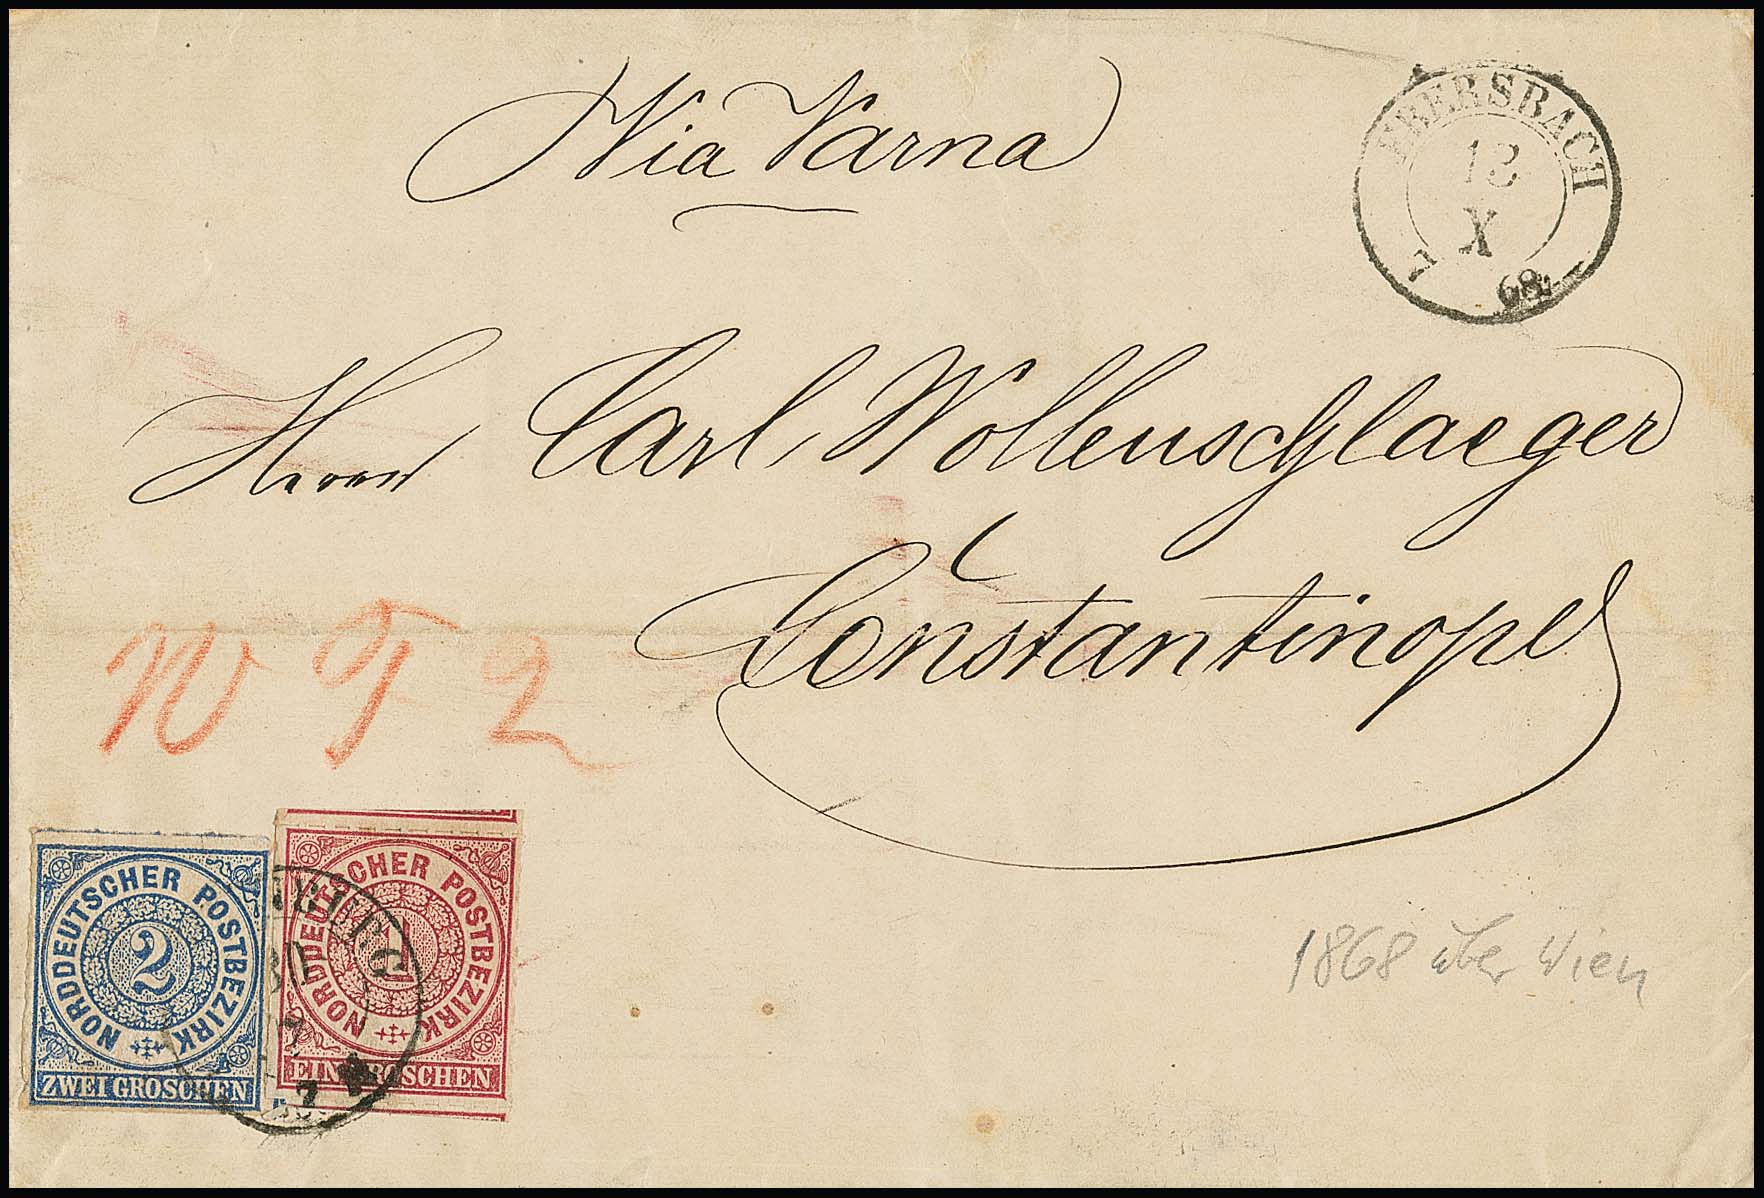 Via Varna
EBERSBACH
18
X
68
Herrn Carl Wollenschlaeger
Constantinopel
W F 2
NORDDEUTSCHER POSTBEZIRK
2
ZWEI GROSCHEN
NORDDEUTSCHER POSTBEZIRK
1
EIN GROSCHEN
1868 über Wien